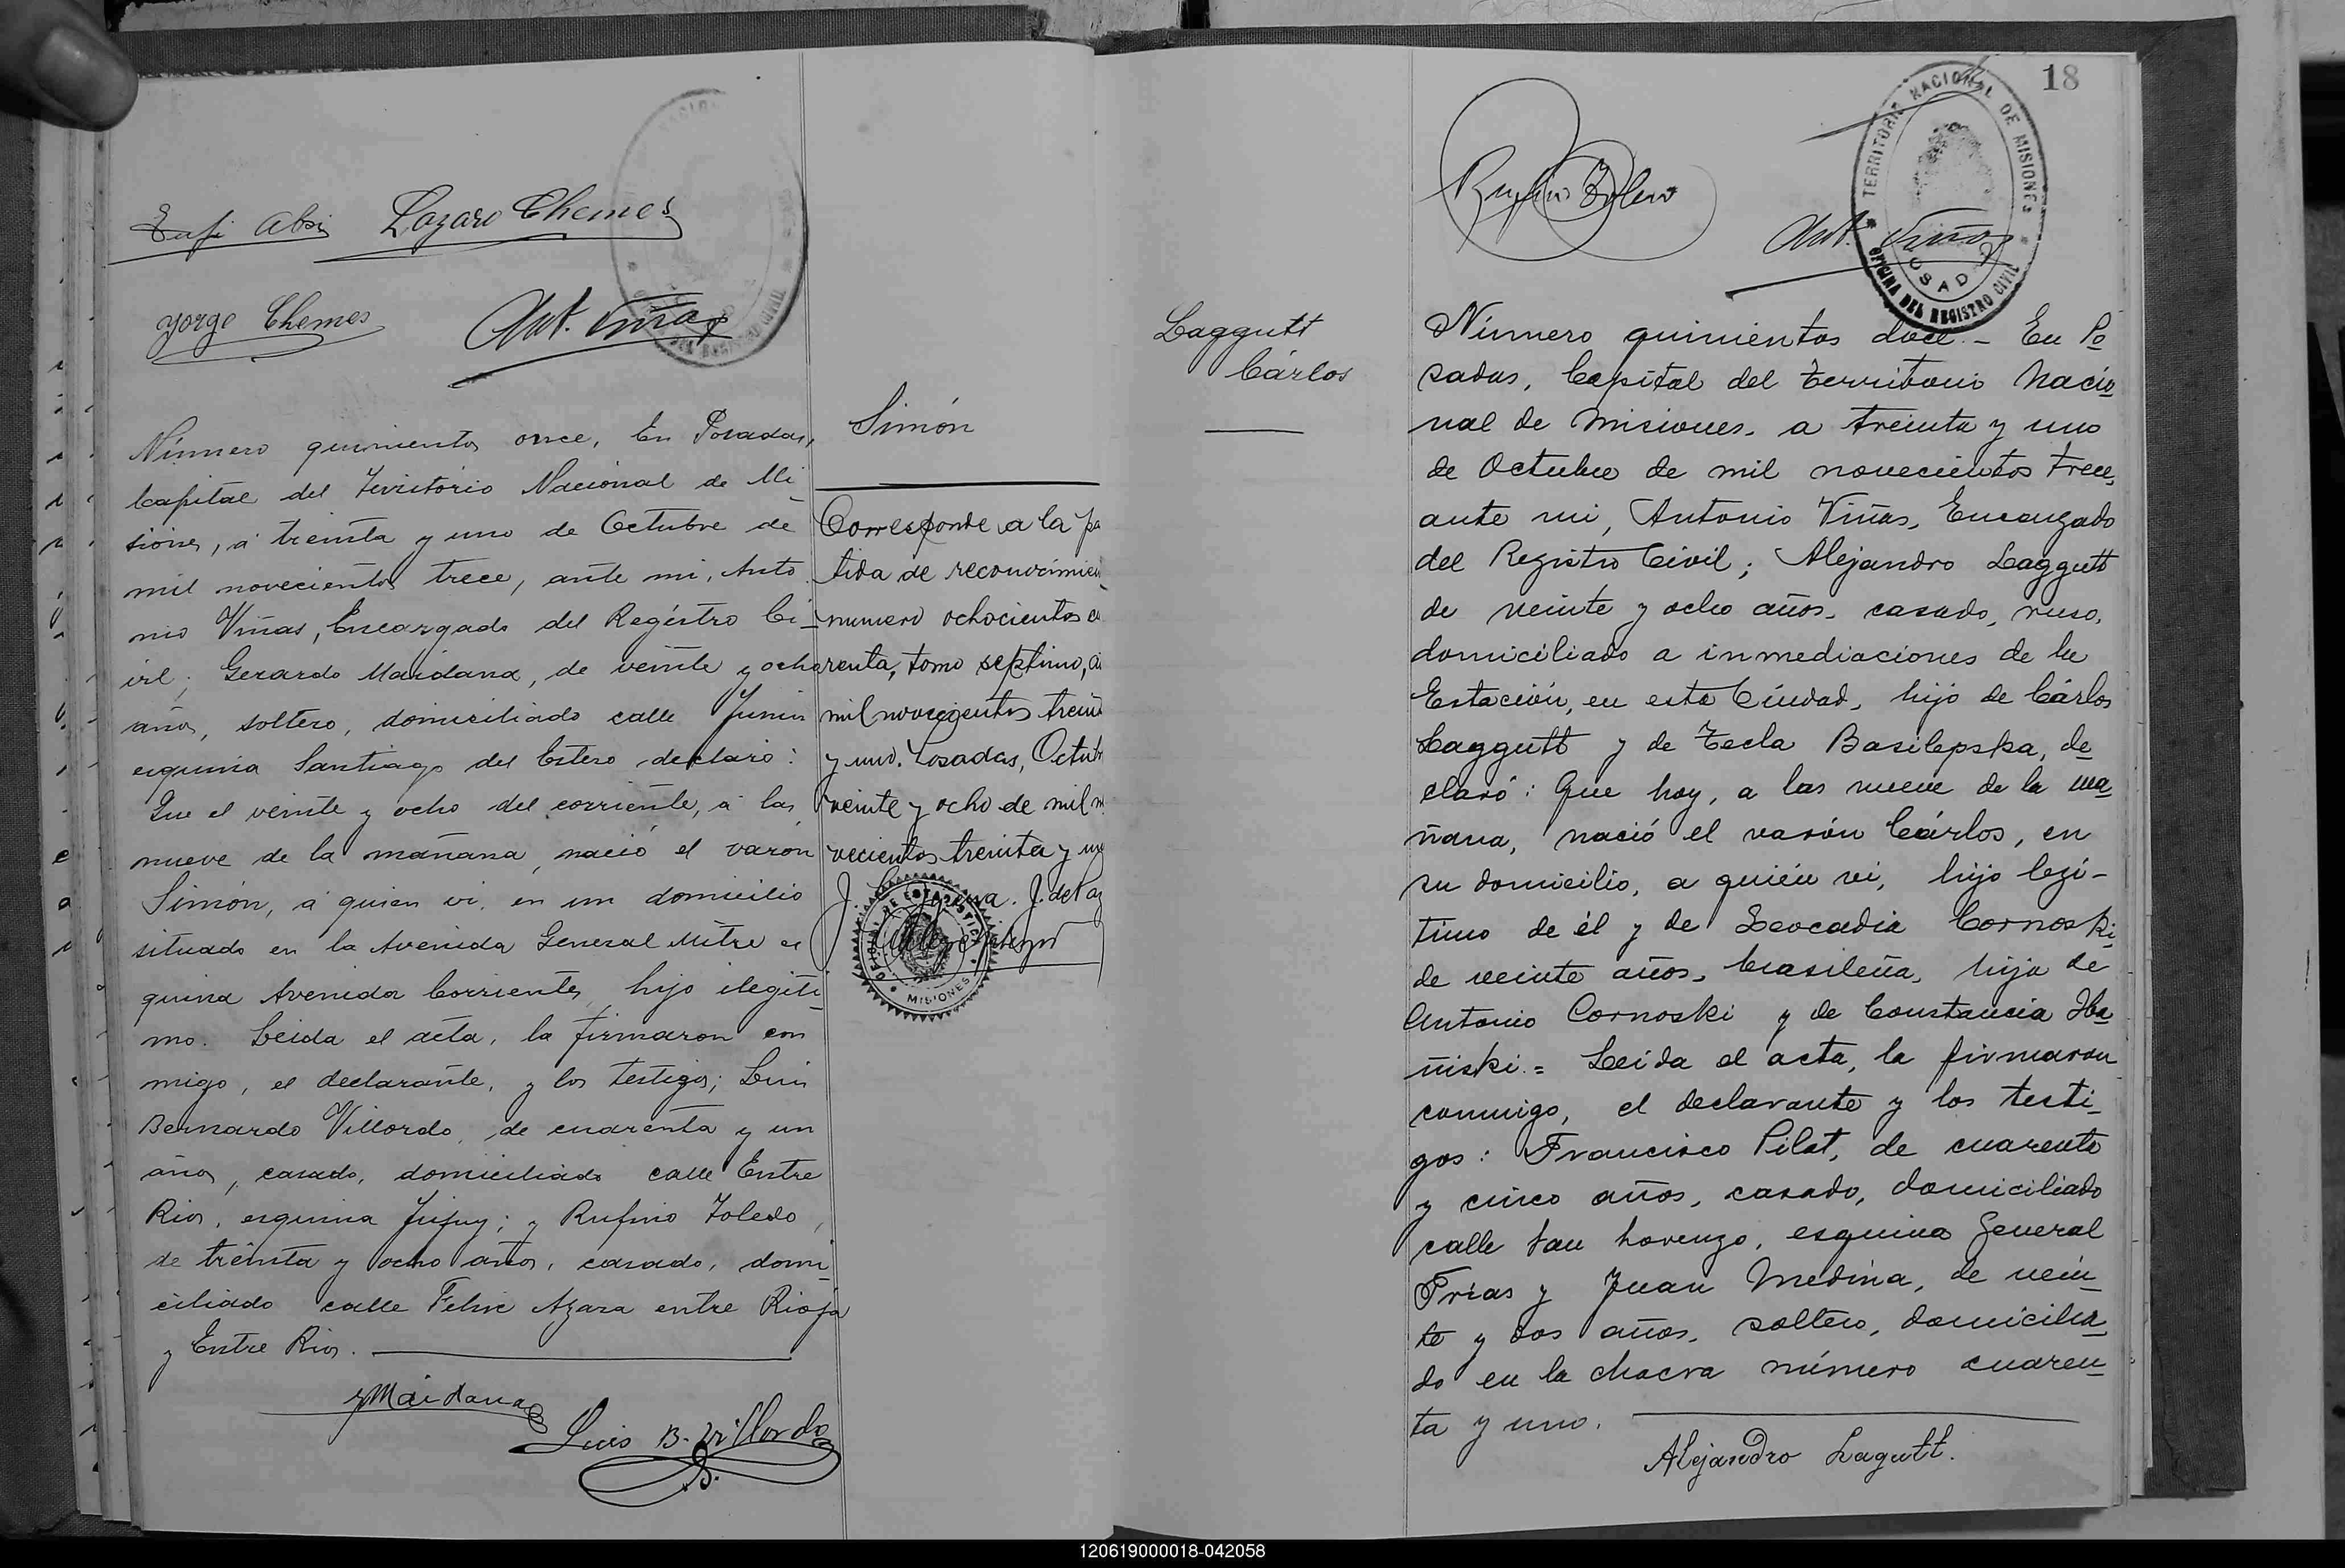 Lazaro Chemes
Jorge Chemes
Ant. Viñas
Número quinientos once, En Posadas,
Capital del Territorio Nacional de Mi-
siones, á treinta y uno de Octubre de
mil novecientos trece, ante mi, Anto
nio Viñas, Encargado del Registro Ci-
vil; Gerardo Maidana, de veinte y ocho
años, soltero, domiciliado calle Junin
esquina Santiago del Estero declaró:
Que el veinte y ocho del corriente, á las
nueve de la mañana, nació el varón
Simón, á quien vi, en un domicilio
situado en la Avenida General Mitre es
quina Avenida Corrientes, hijo ilegiti-
mo. Leida el acta, la firmaron con
migo, el declarante, y los testigos; Luis
Bernardo Villordo, de cuarenta y un
años, casado, domiciliado calle Entre
Rios, esquina Jujuy; y Rufino Toledo,
de treinta y ocho años, casado, domi-
ciliado calle Felix Azara entre Rioja
y Entre Rios.
Maidana
Luis B. Villordo
Simón
Corresponde a la pa
tida de reconocimien
numero ochocientos cu
renta, tomo septimo, a
mil novecientos trein
y uno. Posadas, Octub
veinte y ocho de mil n
vecientos treinta y un
J. de Paz
OFICINA DE ESTADISTICA
MISIONES
18
TERRITORIO NACIONAL DE MISIONES
POSADAS
OFICINA DEL REGISTRO CIVIL
Rufino Toledo
Ant. Viñas
Laggutt
Cárlos
Número quinientos doce.- En Po
sadas, Capital del Territorio Nacio
nal de Misiones, a treinta y uno
de Octubre de mil novecientos trece,
ante mi, Antonio Viñas, Encargado
del Registro Civil; Alejandro Laggutt
de veinte y ocho años, casado, ruso,
domiciliado a inmediaciones de la
Estación, en esta Ciudad, hijo de Cárlos
Laggutt y de Tecla Basilepska, de
claró: Que hoy, a las nueve de la ma
ñana, nació el varón Cárlos, en
su domicilio, a quién vi, hijo legi-
timo de él y de Leocadia Cornoski,
de veinte años, brasileña, hija de
Antonio Cornoski y de Constancia Iba
ñiski.= Leida el acta, la firmaron
conmigo, el declarante y los testi-
gos: Francisco Pilat, de cuarenta
y cinco años, casado, domiciliado
calle San Lorenzo, esquina General
Frías y Juan Medina, de vein-
te y dos años, soltero, domicilia
do en la chacra número cuaren-
ta y uno.
Alejandro Lagutt.
120619000018-042058